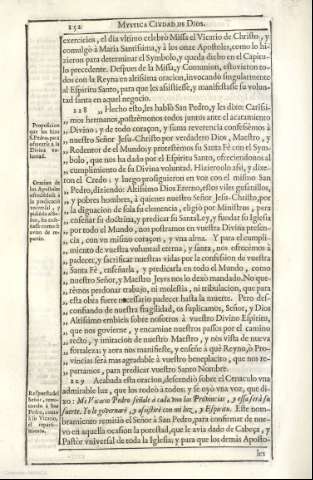 252 MYSTICA CIVDAD DE DIOS.
exercicios, el dia vltimo celebrò Missa el Vicario de Christo, y
comulgò à Maria Santissima, y à los onze Apostoles, como lo hi-
zieron para determinar el Symbolo, y queda dicho en el Capitu-
lo precedente. Despues de la Missa, y Comunion, estuvieron to-
dos con la Reyna en altissima oracion, invocando singularmente
al Espiritu Santo, para que les assistiesse, y manifestasse su volun-
tad santa en aquel negocio.
228 „ Hecho esto, les hablò San Pedro, y les dixo: Carissi-
„ mos hermanos, postrèmonos todos juntos ante el acatamiento
„ Divino; y de todo coraçon, y suma reverencia confessèmos à
„ nuestro Señor Jesu-Christo por verdadero Dios, Maestro, y
„ Redentor de el Mundo; y protestèmos su Santa Fè con el Sym-
„ bolo, que nos ha dado por el Espiritu Santo, ofreciendonos al
„ cumplimiento de su Divina voluntad. Hizieronlo assi, y dixe-
ron el Credo: y luego prosiguieron en voz con el mismo San
„ Pedro, diziendo: Altissimo Dios Eterno, estos viles gusanillos,
„ y pobres hombres, à quienes nuestro Señor Jesu-Christo, por
„ la dignacion de sola su clemencia, eligiò por Ministros, para
„ enseñar su doctrina, y predicar su Santa Ley, y fundar su Iglesia
„ por todo el Mundo, nos postramos en vuestra Divina presen-
„ cia, con vn mismo coraçon, y vna alma. Y para el cumpli-
„ miento de vuestra voluntad eterna, y santa, nos ofrecèmos à
„ padecer, y sacrificar nuestras vidas por la confession de vuestra
„ Santa Fè, enseñarla, y predicarla en todo el Mundo, como
„ nuestro Señor, y Maestro Jesvs nos lo dexò mandado. No que-
„ rèmos perdonar trabajo, ni molestia, ni tribulacion, que para
„ esta obra fuere necessario padecer hasta la muerte. Pero des-
„ confiando de nuestra fragilidad, os suplicamos, Señor, y Dios
„ Altissimo embieis sobre nosotros à vuestro Divino Espiritu,
„ que nos govierne, y encamine nuestros passos por el camino
„ recto, y imitacion de nuestro Maestro, y nos vista de nueva
„ fortaleza: y aora nos manifieste, y enseñe à què Reyno, ò Pro-
„ vincias serà mas agradable à vuestro beneplacito, que nos re-
„ partamos, para predicar vuestro Santo Nombre.
229 Acabada esta oracion, descendiò sobre el Cenaculo vna
admirable luz, que los rodeò à todos, y se oyò vna voz, que di-
xo: Mi Vicario Pedro señale à cada vno las Provincias, y essa serà su
suerte. Yo le governarè, y assistirè con mi luz, y Espiritu. Este nom-
bramiento remitiò el Señor à San Pedro, para confirmar de nue-
vo en aquella ocasion la potestad, que le avia dado de Cabeça, y
Pastòr vniversal de toda la Iglesia; y para que los demàs Aposto-
les
Proposicion
que les hizo
S. Pedro, para
Divina vo-
luntad.
Oracion de
los Apostoles
la predicacion
vniversal, y
Respuesta del
Señor,
à San Pedro,